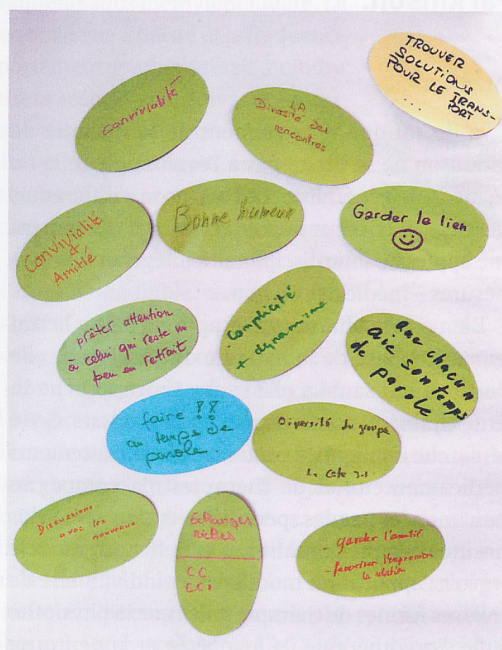 TROUVER
SOLUTIONS
POUR LE TRANS-
PORT
...
Convivialité
LA
Diversité des
rencontres
Convivialité
et
Amitié
Bonne humeur
Garder le lien
prêter attention
à celui qui reste un
peu en retrait
Complicité
+ dynamisme
Que chacun
ait son temps
de parole
faire !!
au temps de
parole.
Diversité du groupe
Discussions
avec les
nouveaux
Echanges
riches
- garder l'amitié
- favoriser l'expression
la relation